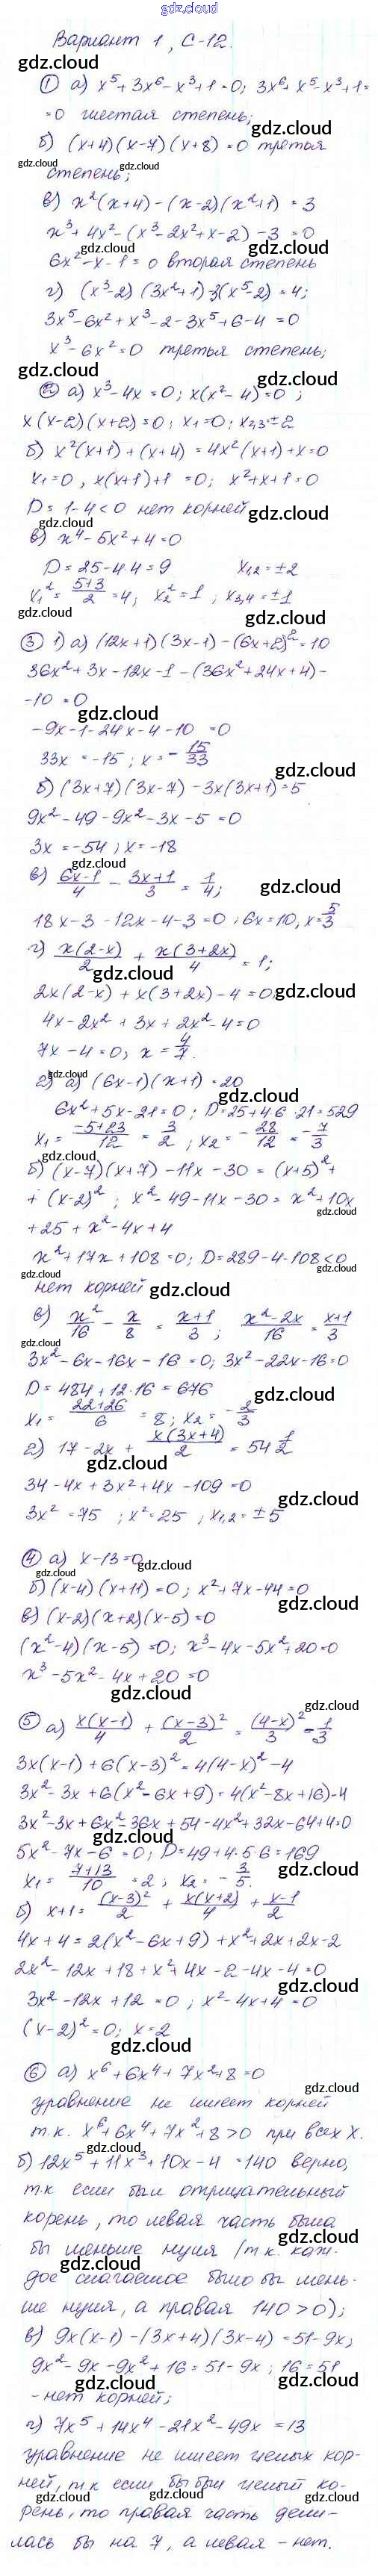 gdz.cloud
Вариант 1, С-12.
① а) x⁵ + 3x⁶ - x³ + 1 = 0; 3x⁶ + x⁵ - x³ + 1 =
= 0 шестая степень;
б) (x+4)(x-7)(x+8) = 0 третья
степень;
в) x²(x+4) - (x-2)(x²+1) = 3
x³ + 4x² - (x³ - 2x² + x - 2) - 3 = 0
6x² - x - 1 = 0 вторая степень
г) (x³-2)(3x²+1) - 3(x⁵-2) = 4;
3x⁵ - 6x² + x³ - 2 - 3x⁵ + 6 - 4 = 0
x³ - 6x² = 0 третья степень;
② а) x³ - 4x = 0; x(x² - 4) = 0;
x(x-2)(x+2) = 0; x₁ = 0; x₂,₃ = ±2
б) x²(x+1) + (x+4) = 4x²(x+1) + x = 0
x₁ = 0, x(x+1) + 1 = 0; x² + x + 1 = 0
D = 1 - 4 < 0 нет корней
в) x⁴ - 5x² + 4 = 0
D = 25 - 4·4 = 9 x₁,₂ = ±2
x₁² = (5+3)/2 = 4; x₂² = 1, x₃,₄ = ±1
③ 1) а) (12x+1)(3x-1) - (6x+2)² = 10
36x² + 3x - 12x - 1 - (36x² + 24x + 4) -
- 10 = 0
-9x - 1 - 24x - 4 - 10 = 0
33x = -15; x = -15/33
б) (3x+7)(3x-7) - 3x(3x+1) = 5
9x² - 49 - 9x² - 3x - 5 = 0
3x = -54; x = -18
в) (6x-1)/4 - (3x+1)/3 = 1/4;
18x - 3 - 12x - 4 - 3 = 0; 6x = 10, x = 5/3
г) x(2-x)/2 + x(3+2x)/4 = 1;
2x(2-x) + x(3+2x) - 4 = 0
4x - 2x² + 3x + 2x² - 4 = 0
7x - 4 = 0; x = 4/7.
2) а) (6x-1)(x+1) = 20
6x² + 5x - 21 = 0; D = 25 + 4·6·21 = 529
x₁ = (-5+23)/12 = 3/2; x₂ = -28/12 = -7/3
б) (x-7)(x+7) - 11x - 30 = (x+5)² +
+ (x-2)²; x² - 49 - 11x - 30 = x² + 10x
+ 25 + x² - 4x + 4
x² + 17x + 108 = 0; D = 289 - 4·108 < 0
нет корней
в) x²/16 - x/8 = (x+1)/3; (x²-2x)/16 = (x+1)/3
3x² - 6x - 16x - 16 = 0; 3x² - 22x - 16 = 0
D = 484 + 12·16 = 676
x₁ = (22+26)/6 = 8; x₂ = -2/3
г) 17 - 2x + x(3x+4)/2 = 54 1/2
34 - 4x + 3x² + 4x - 109 = 0
3x² = 75; x² = 25; x₁,₂ = ±5
④ а) x - 13 = 0
б) (x-4)(x+11) = 0; x² + 7x - 44 = 0
в) (x-2)(x+2)(x-5) = 0
(x²-4)(x-5) = 0; x³ - 4x - 5x² + 20 = 0
x³ - 5x² - 4x + 20 = 0
⑤ а) x(x-1)/4 + (x-3)²/2 = (4-x)²/3 - 1/3
3x(x-1) + 6(x-3)² = 4(4-x)² - 4
3x² - 3x + 6(x² - 6x + 9) = 4(x² - 8x + 16) - 4
3x² - 3x + 6x² - 36x + 54 - 4x² + 32x - 64 + 4 = 0
5x² - 7x - 6 = 0; D = 49 + 4·5·6 = 169
x₁ = (7+13)/10 = 2; x₂ = -3/5.
б) x + 1 = (x-3)²/2 + x(x+2)/4 + (x-1)/2
4x + 4 = 2(x² - 6x + 9) + x² + 2x + 2x - 2
2x² - 12x + 18 + x² + 4x - 2 - 4x - 4 = 0
3x² - 12x + 12 = 0; x² - 4x + 4 = 0
(x-2)² = 0; x = 2
⑥ а) x⁶ + 6x⁴ + 7x² + 8 = 0
уравнение не имеет корней
т.к. x⁶ + 6x⁴ + 7x² + 8 > 0 при всех x.
б) 12x⁵ + 11x³ + 10x - 4 = 140 верно,
т.к если был отрицательный
корень, то левая часть была
бы меньше нуля (т.к. каж-
дое слагаемое было бы мень-
ше нуля, а правая 140 > 0);
в) 9x(x-1) - (3x+4)(3x-4) = 51 - 9x;
9x² - 9x - 9x² + 16 = 51 - 9x; 16 = 51
- нет корней;
г) 7x⁵ + 14x⁴ - 21x² - 49x = 13
уравнение не имеет целых кор-
ней, т.к если бы был целый ко-
рень, то правая часть дели-
лась бы на 7, а левая - нет.